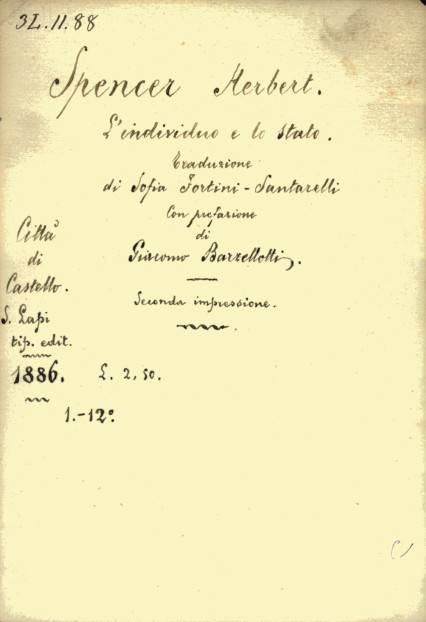 3L.11.88
Spencer Herbert.
L'individuo e lo stato.
Traduzione
di Sofia Fortini-Santarelli
Con prefazione
di
Giacomo Barzellotti.
Seconda impressione.
Città
di
Castello.
S. Lapi
tip. edit.
1886.
L. 2,50.
1.-12º